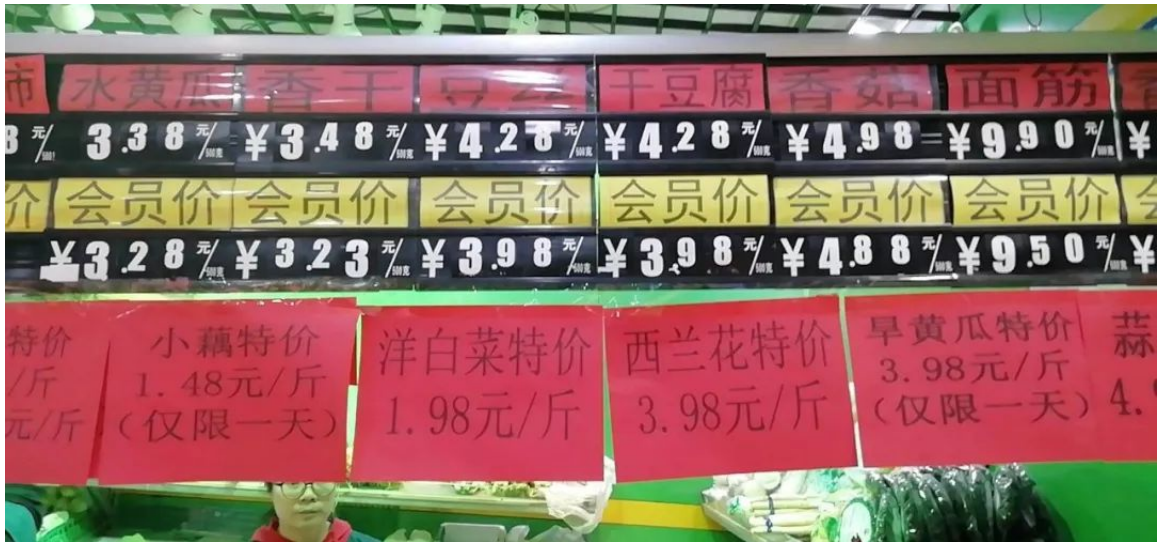 市 水黄瓜 香干 豆丝 干豆腐 香菇 面筋 香
8元/500克 3.38元/500克 ¥3.48元/500克 ¥4.28元/500克 ¥4.28元/500克 ¥4.98 ¥9.90元/500克 ¥
价 会员价 会员价 会员价 会员价 会员价 会员价 会
¥3.28元/500克 ¥3.23元/500克 ¥3.98元/500克 ¥3.98元/500克 ¥4.88元/500克 ¥9.50元/500克 ¥
特价
/斤
元/斤
小藕特价
1.48元/斤
(仅限一天)
洋白菜特价
1.98元/斤
西兰花特价
3.98元/斤
旱黄瓜特价
3.98元/斤
(仅限一天)
蒜
4.